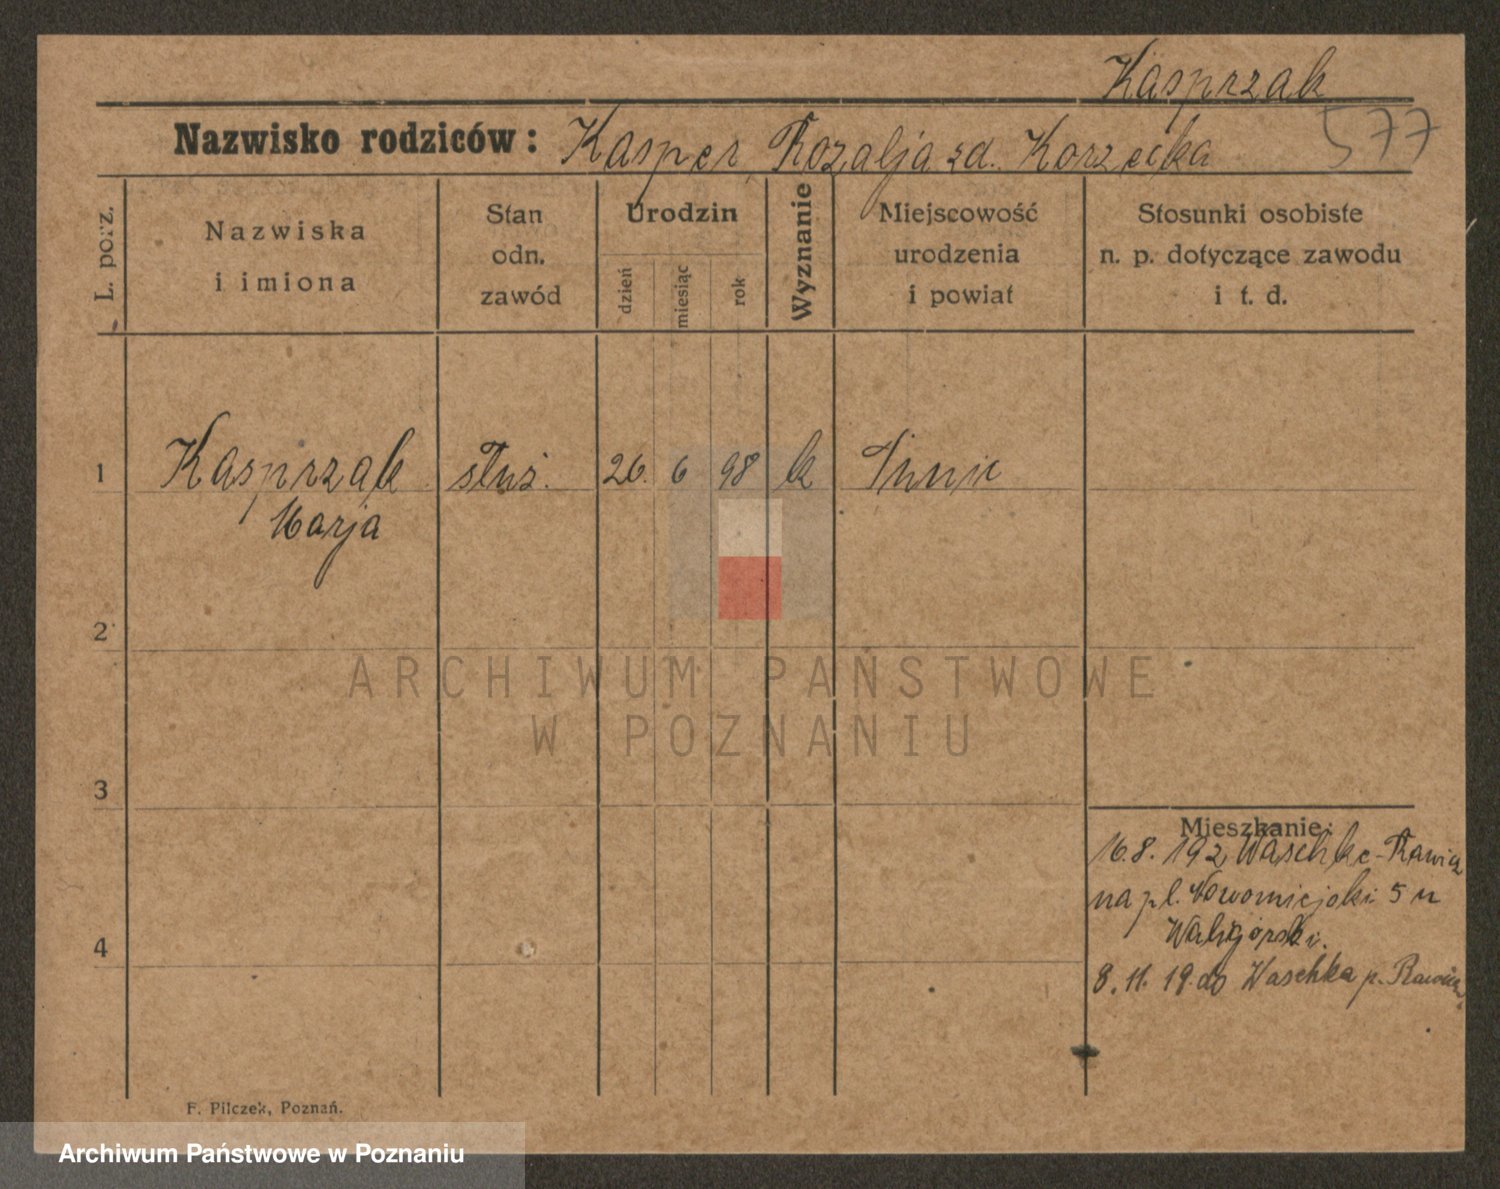 Kasprzak
577
Nazwisko rodziców: Kasper, Rozalja zd. Korzecka
L. porz.
Nazwiska i imiona
Stan odn. zawód
Urodzin
dzień
miesiąc
rok
Wyznanie
Miejscowość urodzenia i powiat
Stosunki osobiste n. p. dotyczące zawodu i t. d.
1 Kasprzak służ. 26. 6 98 k
Marja
2
3
4
Mieszkanie:
16.8. 192 Waschke-Rawicz
na pl. Nowomiejski 5 u
8. 11. 19. do Waschka p. Rawicz
F. Pilczek, Poznań.
ARCHIWUM PAŃSTWOWE
W POZNANIU
Archiwum Państwowe w Poznaniu